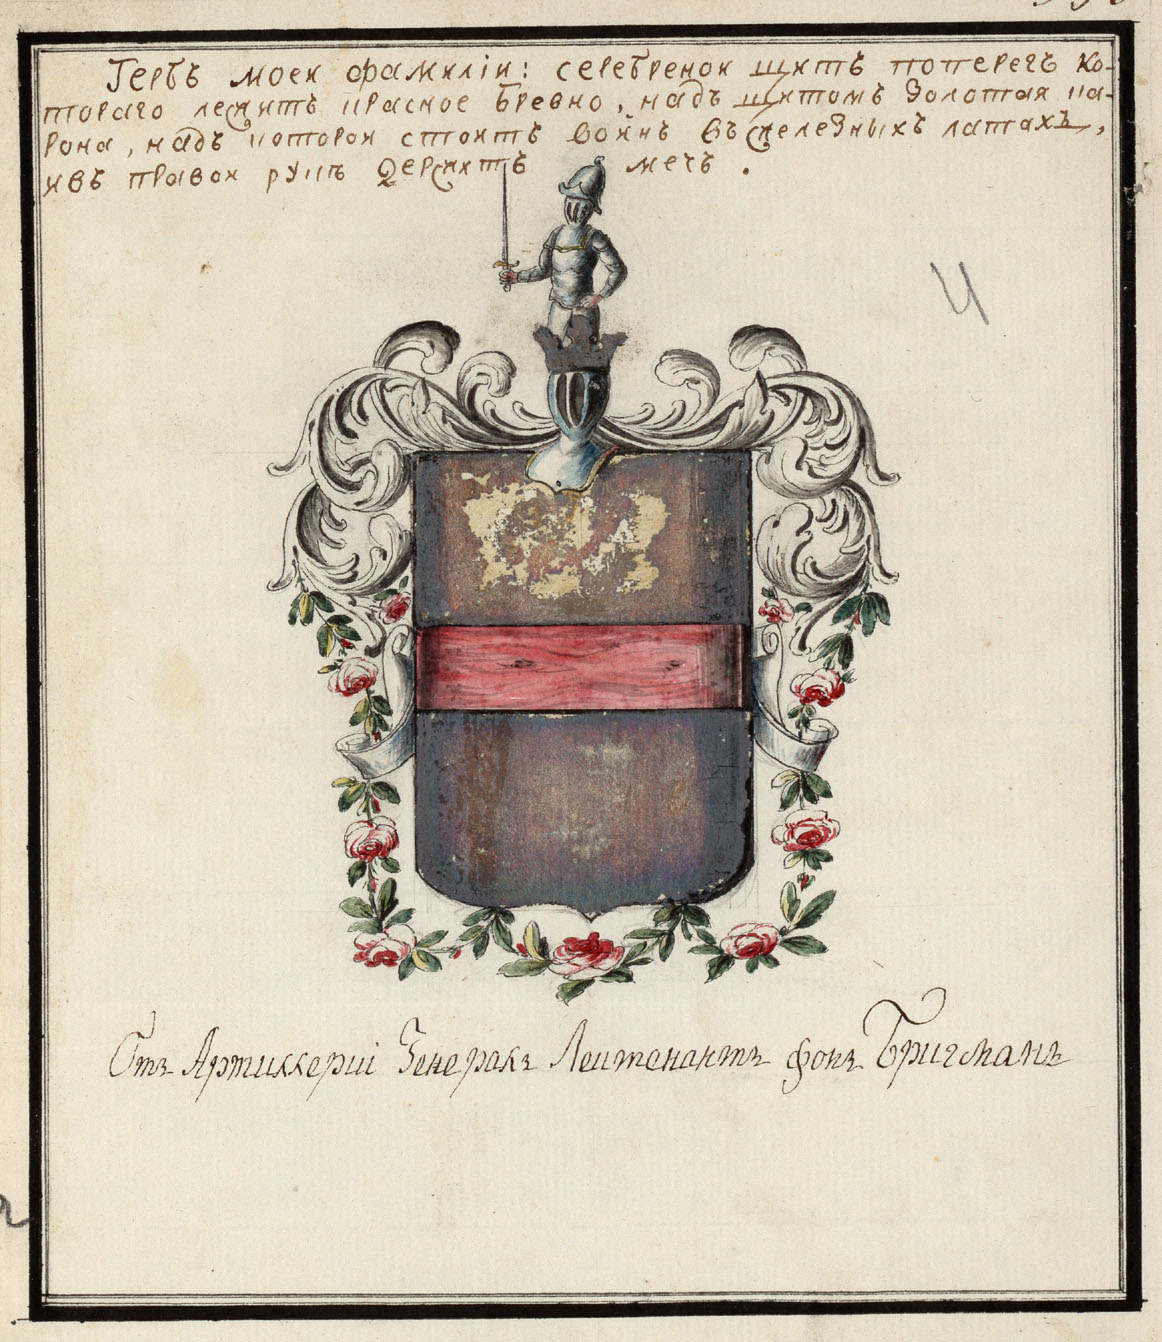 Гербъ моеи фамиліи: серебренои щитъ поперегъ ко-
тораго лежитъ красное бревно, надъ щитомъ золотая ка-
рона, надъ которои стоитъ воинъ въ железныхъ латахъ,
ивъ правои рукѣ держитъ мечъ.
Ч
Отъ Артиллеріи Генералъ Леитенантъ фонъ Бригманъ